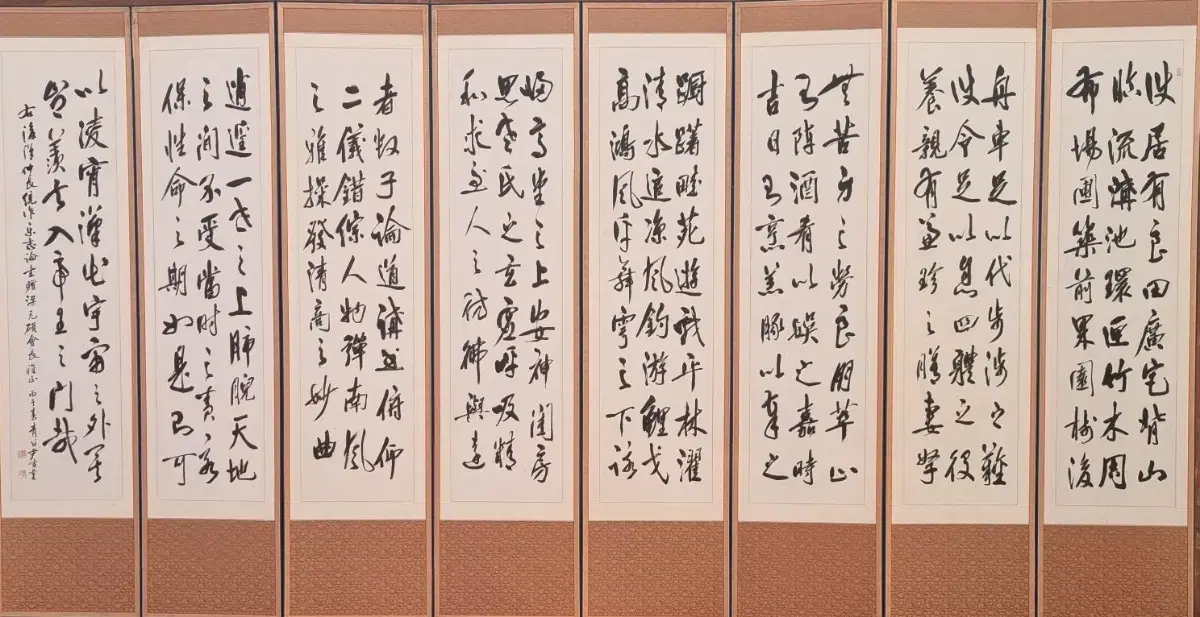 使居有良田廣宅背山
臨流溝池環匝竹木周
布場圃築前果園樹後
舟車足以代步涉之難
使令足以息四體之役
養親有兼珍之膳妻孥
無苦身之勞良朋萃止
則陳酒肴以娛之嘉時
吉日則烹羔豚以奉之
躕躇畦苑遊戲平林濯
清水追凉風釣游鯉弋
高鴻風乎舞雩之下詠
歸高堂之上安神閨房
思老氏之玄虛呼吸精
和求至人之彷彿與達
者數子論道講書俯仰
二儀錯綜人物彈南風
之雅操發清商之妙曲
逍遙一世之上睥睨天地
之間不受當時之責永
保性命之期如是則可
以凌霄漢出宇宙之外矣
豈羨夫入帝王之門哉
右後漢仲長統作樂志論書贈梁元碩會長雅正 丙子春 青谷尹吉重